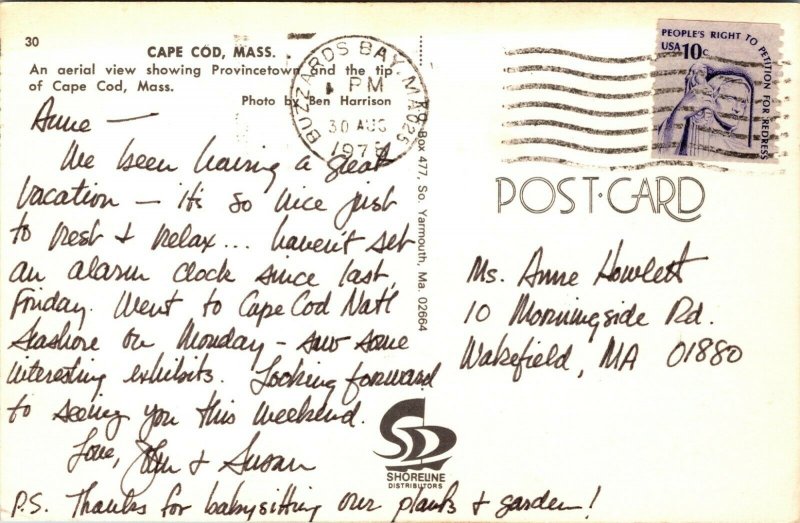 30
CAPE COD, MASS.
An aerial view showing Provincetown and the tip
of Cape Cod, Mass.
Photo by Ben Harrison
Anne —
We been having a great
vacation — it's so nice just
to rest & relax... haven't set
an alarm clock since last
Friday. Went to Cape Cod Nat'l
Seashore on Monday - saw some
interesting exhibits. Looking forward
to seeing you this weekend.
Love, John & Susan
P.S. Thanks for babysitting our plants & garden!
BUZZARDS BAY, MA 025
PM
30 AUG
197
Box 477, So. Yarmouth, Ma. 02664
SHORELINE
DISTRIBUTORS
PEOPLE'S RIGHT TO PETITION FOR REDRESS
USA 10c
POST·CARD
Ms. Anne Howlett
10 Morningside Rd.
Wakefield, MA 01880